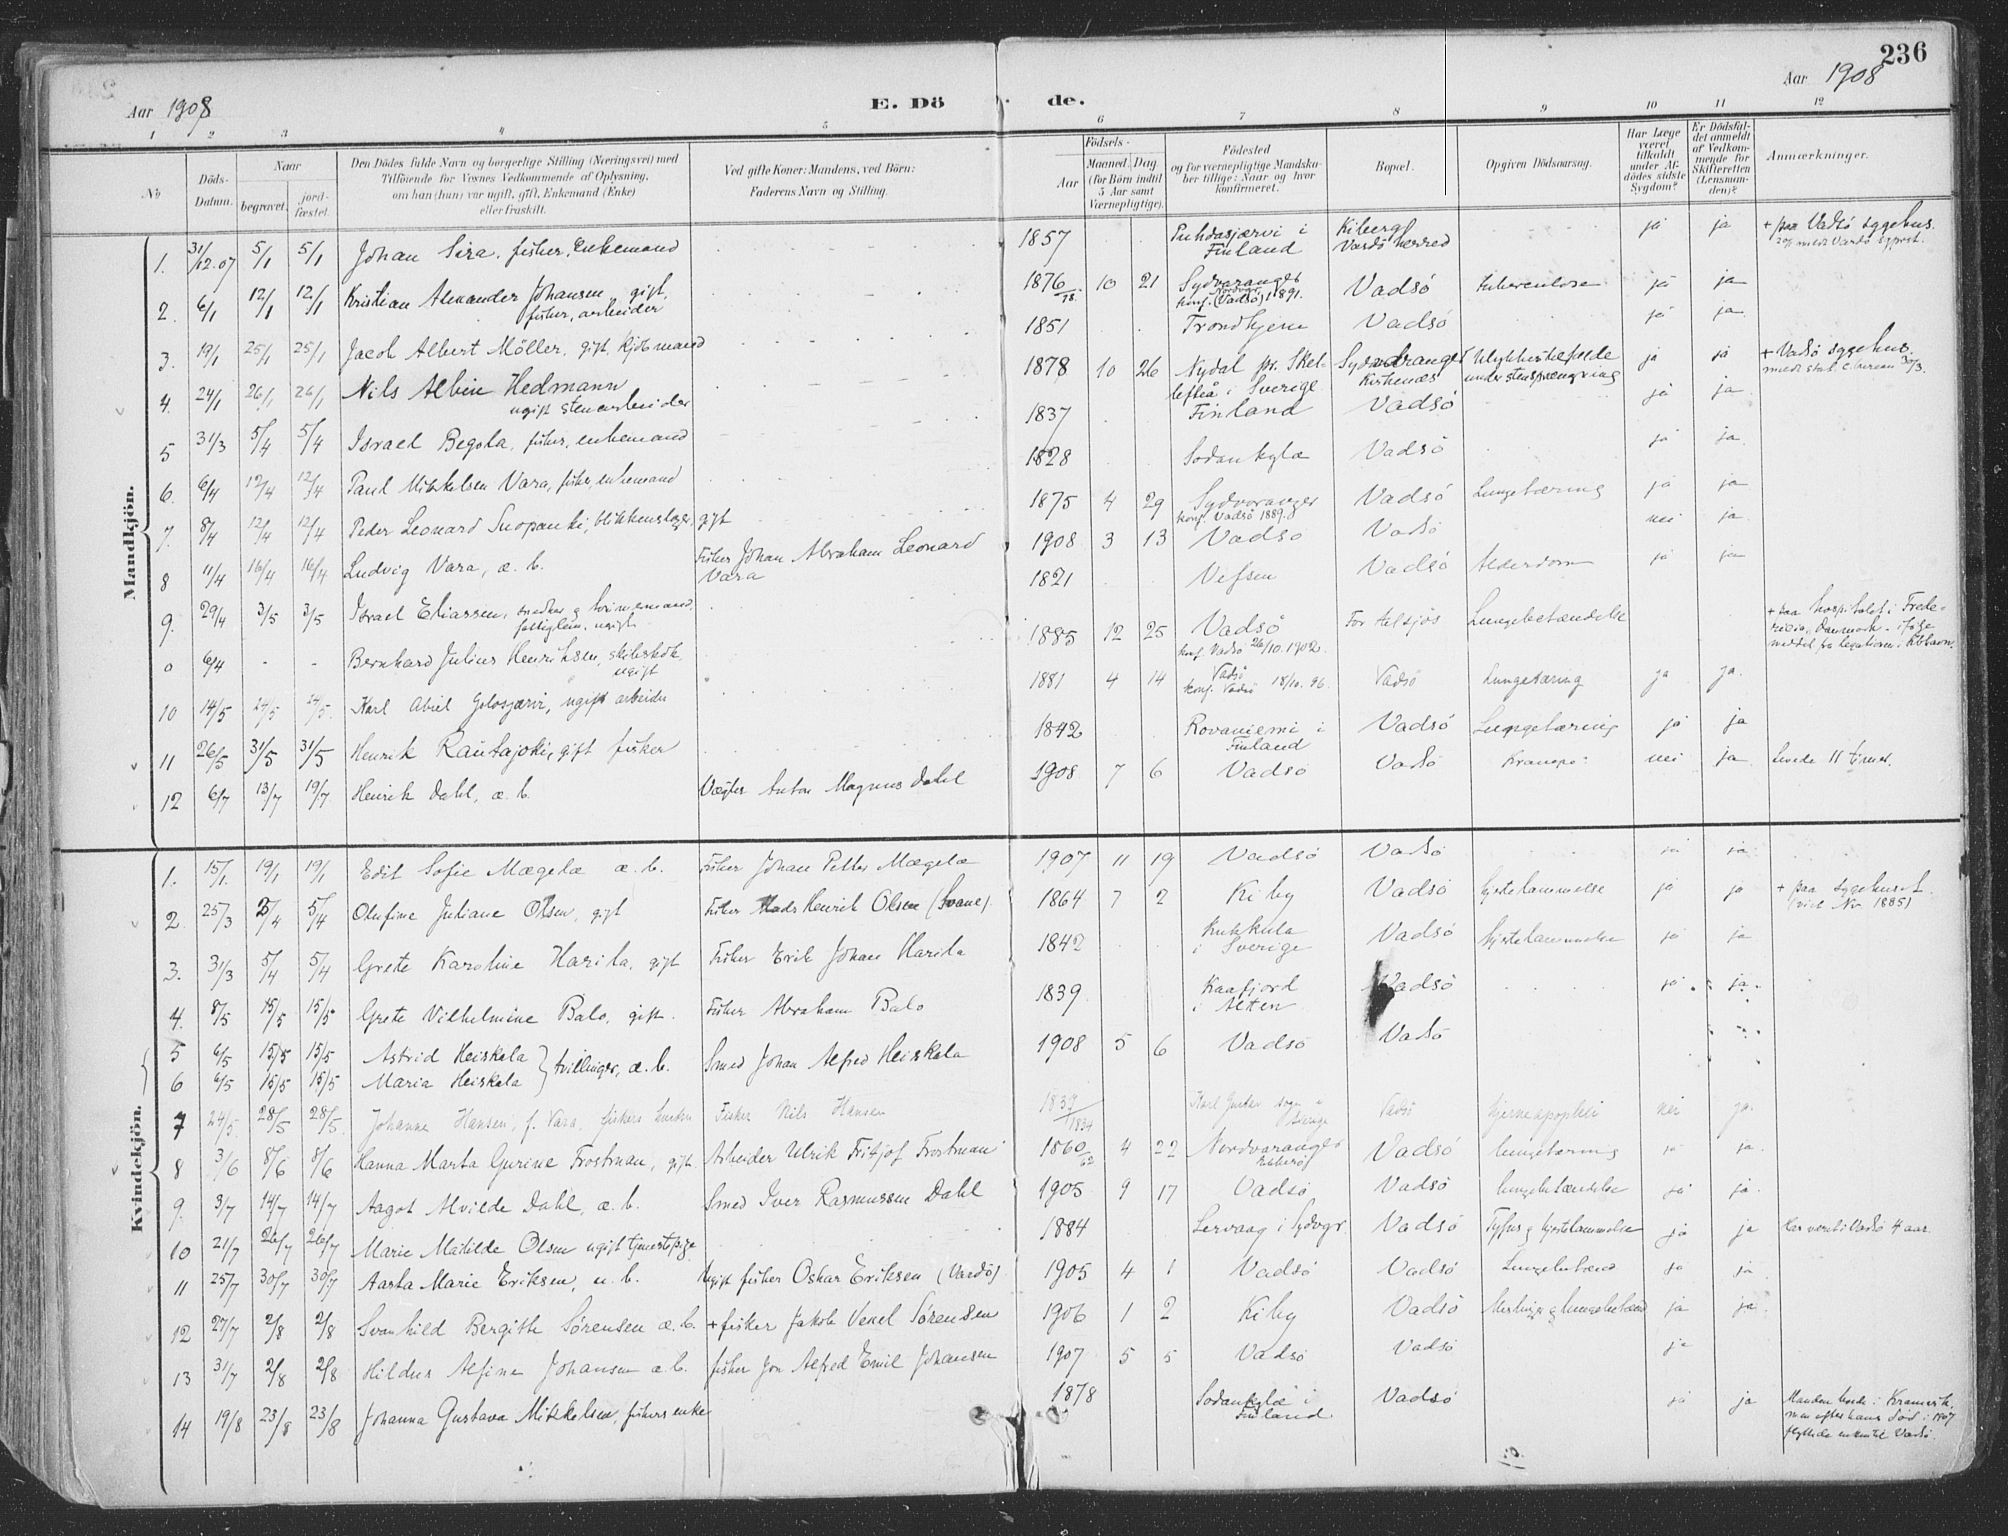 236
Aar 1908
E. Dö de.
Aar 1908
1 2 3 4 5 6 7 8 9 10 11 12
No
Döds-Datum.
Naar begravet. jordfæstet.
Den Dödes fulde Navn og borgerlige Stilling (Næringsvei) med
Tilföiende for Voxnes Vedkommende af Oplysning,
om han (hun) var ugift, gift, Enkemand (Enke)
eller fraskilt.
Ved gifte Koner: Mandens, ved Börn:
Faderens Navn og Stilling.
Födsels-
Aar Maaned. Dag.
(for Börn indtil 5 Aar samt Værnepligtige).
Födested
og for værnepligtige Mandskaber tillige: Naar og hvor konfirmeret.
Bopæl.
Opgiven Dödsaarsag.
Har Læge været tilkaldt under Afdödes sidste Sygdom?
Er Dödsfaldet anmeldt af Vedkommende for Skifteretten (Lensmanden)?
Anmærkninger.
Mandkjön.
1. 31/12.07 5/1 5/1 Johan Sira, fisker, Enkemand 1857 Puhdasjærvi i Finland Kiberg Vardö herred ja ja + paa Vadsö sygehus.
2. 6/1 12/1 12/1 Kristian Alexander Johansen gift, fisker, arbeider 1876/78 10 21 Sydvaranger konf. (Vadsö) 1891. Vadsö tuberculose ja ja
3. 19/1 25/1 25/1 Jacob Albert Möller, gift, kjöbmand 1851 Trondhjem Vadsö ja ja
4. 24/1 26/1 26/1 Nils Albin Hedmann ugift stenarbeider 1878 10 26 Nydal pr. Skellefteå i Sverige Sydvaranger Kirkenæs Ulykkestilfælde under stensprængning ja ja + Vadsö sygehus.
5 31/3 5/4 5/4 Israel Begola, fisker, enkemand 1837 Finland Vadsö ja ja
6. 6/4 12/4 12/4 Paul Mikkelsen Vara, fisker, enkemand 1828 Sodankylæ Vadsö ja ja
7. 8/4 12/4 12/4 Peder Leonard Snopanki, blikkenslager, gift 1875 4 29 Sydvaranger konf. Vadsö 1889. Vadsö Lungetæring ja ja
8 11/4 16/4 16/4 Ludvig Vara, æ. b. Fisker Johan Abraham Leonard Vara 1908 3 13 Vadsö Vadsö nei ja
9. 29/4 3/5 3/5 Israel Eliassen, snedker, fattiglem, ugift 1821 Vefsen Vadsö Alderdom ja ja
0 6/4 - - Bernhard Julius Henriksen, skibskok, ugift 1885 12 25 Vadsö konf. Vadsö 26/10.1902. Lungebetændelse + paa hospitalet i Fredericia, Danmark - ifølge meddel. fra legationen i Kbhavn.
10 14/5 24/5 24/5 Karl Abiel Golosjærvi, ugift arbeider 1881 4 14 Vadsö konf. Vadsö 18/10.96. Vadsö Lungetæring ja ja.
11 26/5 31/5 31/5 Henrik Rautajoki, gift fisker 1842 Rovaniemi i Finland Vadsö Lungetæring ja ja
12 6/7 13/7 19/7 Henrik Dahl, æ. b. Vægter Anton Magnus Dahl 1908 7 6 Vadsö Vadsö Krampe nei ja levede 11 timer.
Kvindekjön.
1. 15/1. 19/1 19/1 Edit Sofie Mægelæ æ. b. Fisker Johan Petter Mægelæ 1907 11 19 Vadsö Vadsö ja ja
2. 25/3 5/4 5/4 Olufine Juliane Olsen, gift Fisker Mads Henrik Olsen (Svane) 1864 7 2 Kiby Vadsö hjertelammelse ja ja + paa sygehuset.
3. 31/3 5/4 5/4 Grete Karoline Harila, gift Fisker Erik Johan Harila 1842 Kukkula i Sverige Vadsö hjertelammelse ja ja
4. 8/5 15/5 15/5 Grete Vilhelmine Balo, gift. Fisker Abraham Balo 1839 Kaafjord i Alten Vadsö ja ja.
5 6/5 15/5 15/5 Astrid Heiskela } tvillinger, æ. b. Smed Johan Alfred Heiskela 1908 5 6 Vadsö Vadsö
6 6/5 15/5 15/5 Maria Heiskela
7 24/5. 28/5 28/5. Johanne Hansen, f. Vara, fiskers hustru Fisker Nils Hansen 1837/1834 Karl Gustav sogn i Sverige Vadsö hjerneapoplexi nei ja.
8 3/6 8/6 8/6 Hanna Marta Gurine Frostman, gift Arbeider Ulrik Fritjof Frostman 1860/62 4 22 Nordvaranger Ekkerö Vadsö lungetæring ja ja.
9. 3/7 14/7 14/7 Aagot Alvilde Dahl, æ. b. Smed Iver Rasmussen Dahl 1905 9 17 Vadsö Vadsö lungebetændelse ja ja.
10 21/7 26/7 26/7 Marie Matilde Olsen ugift tjenestepige 1884 Lervaag i Sydvgr. Vadsö Tyfus & hjertelammelse ja ja Har været i Vadsö 4 aar.
11 25/7 30/7 30/7 Aasta Marie Eriksen, u. b. Ugift fisker Oskar Eriksen (Vardö) 1905 4 1 Vadsö Vadsö Lungebetænd ja ja
12 27/7 2/8 2/8 Svanhild Bergitte Sörensen æ. b. + fisker Jakob Venel Sörensen 1906 1 2 Kiby Vadsö Meslinger & lungebetænd ja ja.
13 31/7 2/8 2/8 Hildur Alfine Johansen æ. b. fisker Jon Alfred Emil Johansen 1907 5 5 Vadsö Vadsö ja
14 19/8 23/8 23/8 Johanna Gustava Mikkelsen, fiskers enke 1878 Sodankylæ i Finland Vadsö ja ja Manden boede i Kramvik men efter hans död i 1907 flyttede enken til Vadsö.